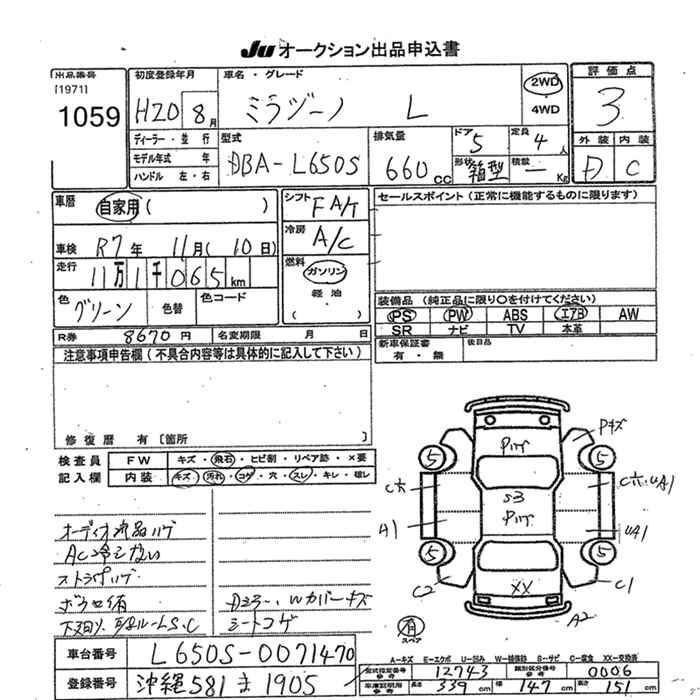 JU オークション出品申込書
出品番号
[1971]
1059
初度登録年月
H20 8月
車名・グレード
ミラジーノ L
2WD
4WD
評価点
3
外装 内装
D C
ディーラー・並行
モデル年式 年
ハンドル 左・右
型式
DBA-L650S
排気量
660 cc
ドア
5
定員
4人
形状
箱型
積載
— Kg
車歴
自家用( )
車検 R7年 11月(10日)
走行
11万1千065km
色
グリーン
色替
色コード
シフト
FAT
冷房
A/C
燃料
ガソリン
軽油
( )
セールスポイント(正常に機能するものに限ります)
装備品(純正品に限り○を付けてください)
PS PW ABS エアB AW
SR ナビ TV 本革
新車保証書
有・無
後日品
R券 8670円 名変期限 月 日
注意事項申告欄(不具合内容等は具体的に記入して下さい)
修復歴 有〔箇所 〕
検査員
記入欄
FW キズ・飛石・ヒビ割・リペア跡・×要
内装 キズ・汚れ・コゲ・穴・スレ・キレ・破レ
オーディオ液晶ハゲ
AC冷えない
Dミラー、Wカバーキズ
シートコゲ
Pハゲ
S3
Pハゲ
XX
Pキズ
5
5
5
5
C穴
C穴、uA1
A1
uA1
C2
C1
A2
有
スペア
A-キズ E-エクボ U-凹み W-補修跡 S-サビ C-腐食 XX-交換済
車台番号 L650S-0071470
登録番号 沖縄 581 ま 1905
型式指定番号
参考
12743
類別区分番号
参考
0006
長さ 339 cm
幅 147 cm
高さ 151 cm